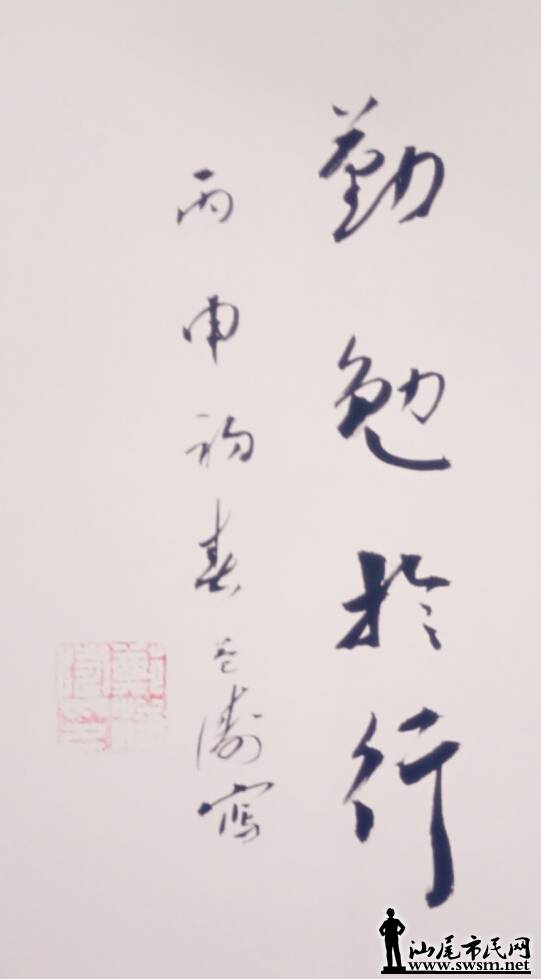 勤勉於行
丙申初春 濤寫
汕尾市民网
www.swsm.net